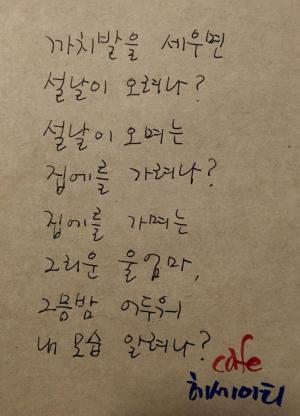 까치발을 세우면
설날이 오려나?
설날이 오며는
집에를 가려나?
집에를 가며는
그리운 울엄마,
그믐밤 어두워
내 모습 알려나?
cafe